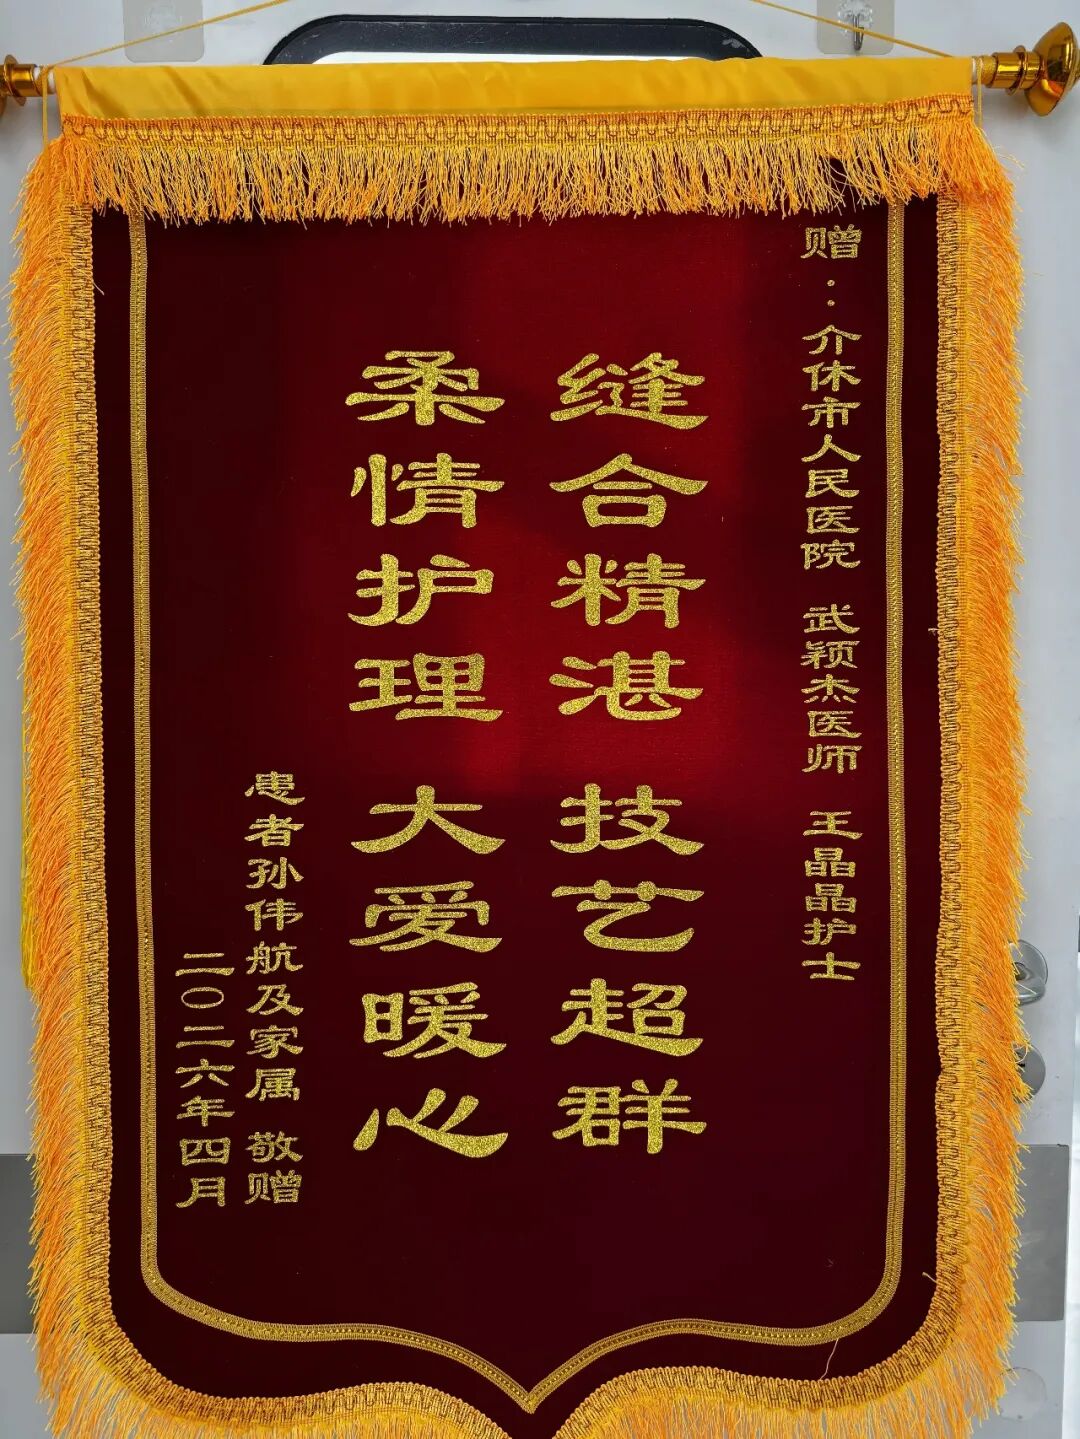 赠：介休市人民医院 武颖杰医师 王晶晶护士
缝合精湛 技艺超群
柔情护理 大爱暖心
患者孙伟航及家属 敬赠
二〇二六年四月